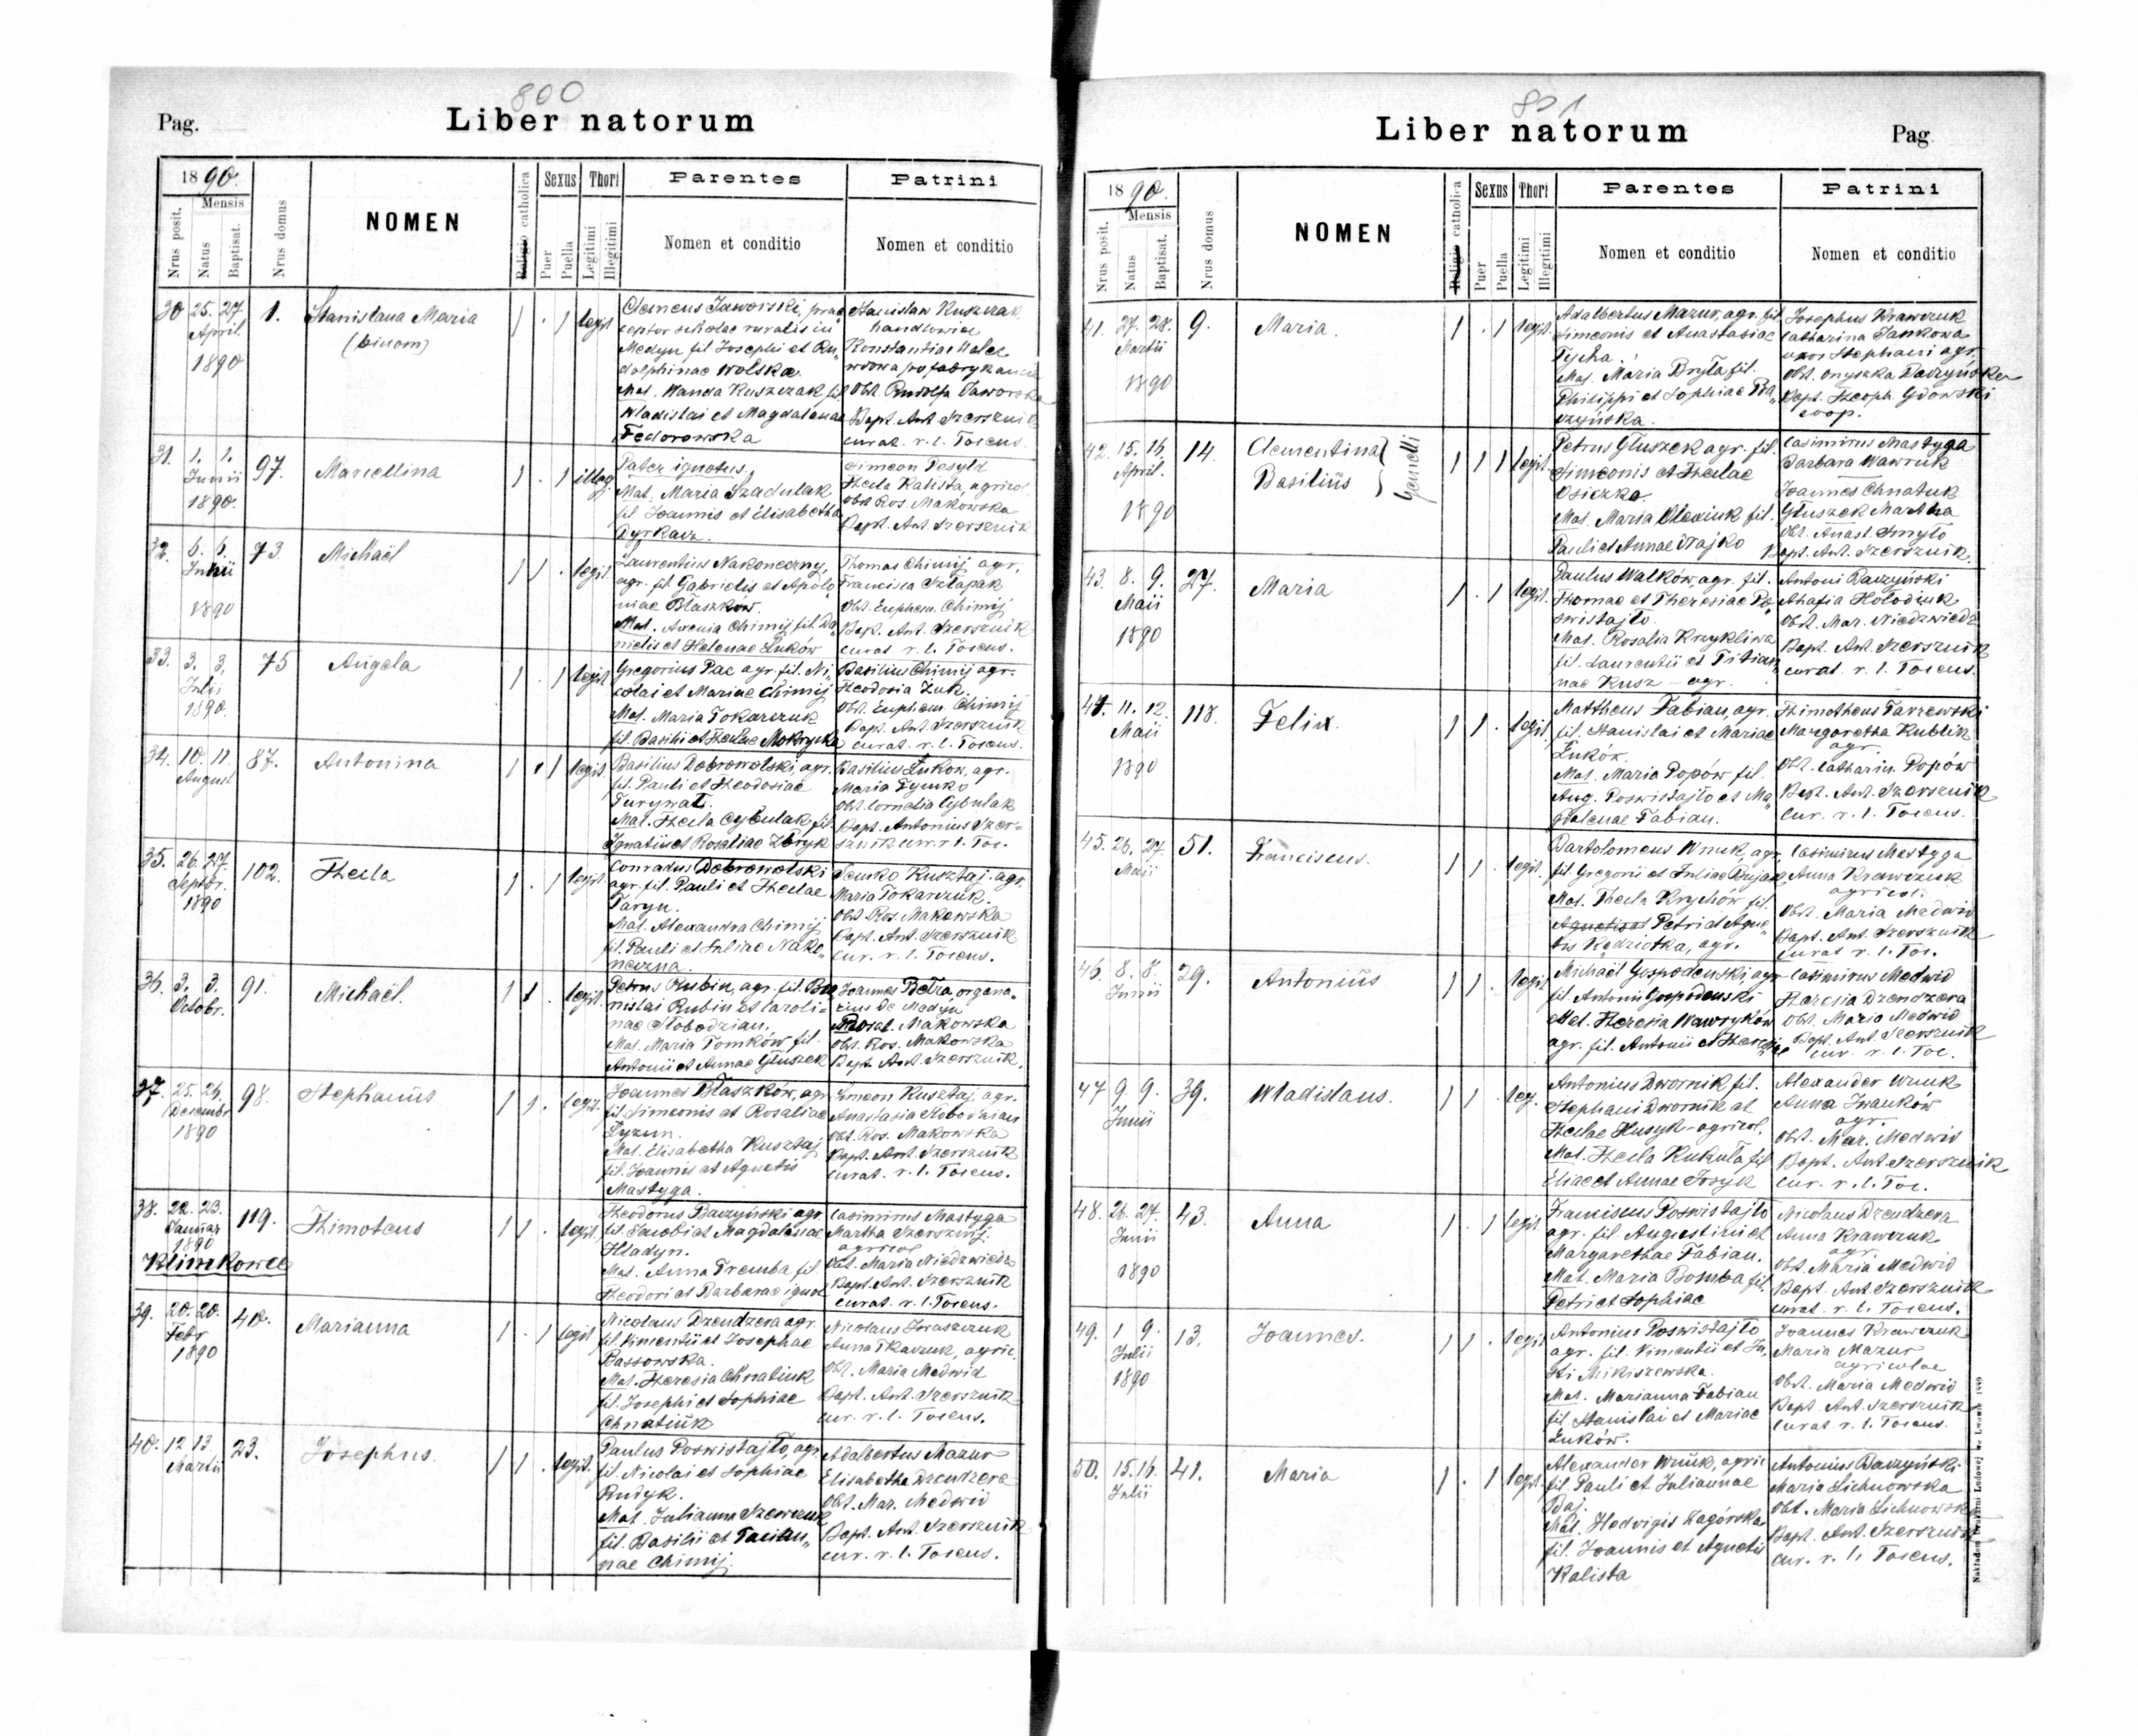 800
Pag.
Liber natorum
1890.
Mensis
Nrus posit.
Natus
Baptisat.
Nrus domus
NOMEN
Religio catholica
Sexus
Puer
Puella
Thori
Legitimi
Illegitimi
Parentes
Nomen et conditio
Patrini
Nomen et conditio
30 25. 27. 1. Stanislaua Maria
April.
1890
(binom)
legit
Clemens Jaworski, prae
ceptor scholae ruralis in
Medyn fil Josephi et Ru„
dolphinae Wolska.
Mat. Wanda Kuszczak fil
Wladislai et Magdalenae
Fedorowska
Stanislaw Kuszczak
handlowiec
Konstantia Malec
wdowa po fabrykancie
Obst. Rudolfa Jaworska
Bapt. Ant. Szersznik
curat. r. l. Toieus.
31. 1. 1. 97. Marcellina
Junii
1890.
illeg.
Pater ignotus.
Mat. Maria Szadulak
fil Joannis et Elisabetha
Dyrkacz.
Simeon Posyld
Thecla Kalista, agricol
Obst Ros. Makowska
Bapt. Ant. Szersznik
32. 6. 6. 73 Michaël
Junii
1890
legit.
Laurentius Nakoneczny,
agr. fil Gabrielis et Apolo„
niae Błaszków.
Mat. Axenia Chimij fil Da„
nielis et Helenae Luków
Thomas Chimij agr.
Francisca Szlapak
Obst. Euphem. Chimij
Bapt. Ant. Szersznik
curat r. l. Toieus.
33. 3. 3. 75 Angela
Julii
1890.
legit
Gregorius Pac agr. fil. Ni„
colai et Mariae Chimij
Mat. Maria Tokarczuk
fil. Basilii et Theclae Mokrycka
Basilius Chimij agr.
Theodosia Zuk.
Obst. Euphem Chimij
Bapt. Ant. Szersznik
curat. r. l. Toieus.
34. 10. 11. 87. Antonina
August
legit.
Basilius Dobrowolski, agr.
fil. Pauli et Theodosiae
Turynat.
Mat. Thecla Cybulak fil.
Ignatii et Rosaliae Zbryk
Basilius Lukow, agr.
Maria Tymko
Obst. Cornelia Cybulak
Bapt. Antonius Szer-
sznik cur. r. l. Toi.
35. 26. 27. 102. Thecla
Septbr.
1890
legit.
Conradus Dobrowolski
agr. fil. Pauli et Theclae
Taryn.
Mat. Alexandra Chimij
fil. Pauli et Juliae Nako„
neczna.
Senko Kusztaj. agr.
Maria Tokarczuk.
Obst Ros. Makowska
Bapt. Ant. Szersznik
cur. r. l. Toieus.
36. 3. 3. 91. Michaël.
Octobr.
legit.
Petrus Rubin, agr. fil. Bro
nislai Rubin et Caroli=
nae Słobodzian.
Mat. Maria Tomków fil.
Antonii et Annae Głuszek
Joannes Betza organa„
rius de Medyn
Rosal. Makowska
Obst. Ros. Makowska
Bapt. Ant. Szersznik.
37. 25. 26. 98. Stephanus
Decembr
1890
legit.
Joannes Błaszków, agr
fil. Simeonis et Rosaliae
Tyzun.
Mat. Elisabetha Kusztaj
fil. Joannis et Agnetis
Mastyga.
Simeon Kusztaj, agr.
Anastasia Słobodzian
Obt. Ros. Makowska
Bapt. Ant. Szersznik
curat. r. l. Toieus.
38. 22. 23. 119. Thimoteus
Januar
1890
legit.
Theodorus Baczyński agr
fil. Jacobi et Magdalenae
Hladyn.
Mat. Anna Tremba fil
Theodori et Barbarae ignot
Casimirus Mastyga
Martha Szerszinij
agricol
Obt. Maria Niedzwiedz
Bapt. Ant. Szersznik
curat. r. l. Toieus.
Klimkowce
39. 20. 20. 40. Marianna
Febr
1890
legit
Nicolaus Dzendzera agr.
fil Vincentii et Josephae
Bassowska.
Mat. Theresia Chnatiuk
fil. Josephi et Sophiae
Chnatiuk
Nicolaus Iwaszczuk
Anna Tkaczuk, agric.
Obt. Maria Medwid
Bapt. Ant. Szersznik
cur. r. l. Toieus.
40. 12 13. 23. Josephus.
Martii
legit.
Paulus Poswistajło, agr.
fil. Nicolai et Sophiae
Rudyk.
Mat. Julianna Szewczuk
fil. Basilii et Tacian„
nae Chimij.
Adalbertus Mazur
Elisabetha Dzendzera
Obt. Mar. Medwid
Bapt. Ant. Szersznik
cur. r. l. Toieus.
801
Liber natorum
Pag
1890.
Mensis
Nrus posit.
Natus
Baptisat.
Nrus domus
NOMEN
Religio catholica
Sexus
Puer
Puella
Thori
Legitimi
Illegitimi
Parentes
Nomen et conditio
Patrini
Nomen et conditio
41. 27. 28. 9. Maria.
Martii
1890
legit.
Adalbertus Mazur, agr. fil
Simeonis et Anastasiae
Tycha.
Mat. Maria Dryla fil.
Philippi et Sophiae Ba„
czyńska.
Josephus Krawczuk
Catharina Jankowa
uxor Stephani agr.
Obst. Onyszka Baczyńska
Bapt. Theoph. Gdowski
coop.
42. 15. 16. 14. Clementina
April.
Basiliüs
Gemelli
1890
legit.
Petrus Głuszek agr. fil.
Simeonis et Theclae
Osieczka.
Mat. Maria Olexiuk fil.
Pauli et Annae Hajko
Casimirus Mastyga
Barbara Wawruk
Joannes Chnatuk
Głuszek Martha
Obt. Anast. Smyto
Bapt. Ant. Szersznik.
43. 8. 9. 27. Maria
Maii
1890
legit.
Paulus Walków, agr. fil.
Thomae et Theresiae Po„
swistajto.
Mat. Rosalia Krzykliwa
fil. Laurentii et Titian„
nae Kusz - agr.
Antoni Baczyński
Ahafia Hołodiuk
Obst. Mar. Niedzwiedz
Bapt. Ant. Szersznik
curat. r. l. Toieus.
44. 11. 12. 118. Felix.
Maii
1890
legit
Mattheus Fabian, agr.
fil. Stanislai et Mariae
Łuków.
Mat. Maria Popów fil.
Aug. Poswistajło et Ma„
gdalenae Fabian.
Thimotheus Tarzewski
Margaretha Kublik
agr.
Obt. Catharin. Popów
Bapt. Ant. Szersznik
cur. r. l. Toieus.
45. 26. 27. 51. Franciscus.
Maii
legit.
Bartolomeus Wnuk, agr.
fil Gregorii et Juliae Kujak
Mat. Thecla Krychów fil.
Petri et Agne„
tis Kędziołka, agr.
Casimirus Mastyga
Anna Krawczuk
agricol.
Obst. Maria Medwid
Bapt. Ant. Szersznik
curat r. l. Toi.
46. 8. 8. 29. Antoniüs
Junii
legit
Michaël Gospodenski, agr
fil. Antonii Gospodenski
Mat. Theresia Wawryków
agr. fil. Antonii et Theresiae
Casimirus Medwid
Theresia Dzendzera
Obst. Maria Medwid
Bapt. Ant Szersznik
cur. r. l. Toi.
47 9. 9. 39. Wladislaus.
Junii
leg.
Antonius Dwornik fil.
Stephani Dwornik et
Theclae Husyk - agricol.
Mat. Thecla Kukuła fil
Eliae et Annae Josyk
Alexander Wnuk
Anna Iwanków
agr.
Obst. Mar. Medwid
Bapt. Ant Szersznik
cur. r. l. Toi.
48. 26. 27. 43. Anna
Junii
1890
legit.
Franciscus Poswistajto
agr. fil. Augustini et
Margarethae Fabian.
Mat. Maria Bomba fil.
Petri et Sophiae
Nicolaus Dzendzera
Anna Krawczuk
agr.
Obst. Maria Medwid
Bapt. Ant. Szersznik
curat. r. l. Toieus.
49. 1 9. 13. Joannes.
Julii
1890
legit
Antonius Poswistajto
agr. fil. Vincentii et Ju„
sti Mikiszewska.
Mat. Marianna Fabian
fil Stanislai et Mariae
Łuków.
Joannes Krawczuk
Maria Mazur
agricolae
Obst. Maria Medwid
Bapt. Ant. Szersznik
Curat r. l. Toieus.
50. 15. 16. 41. Maria
Julii
legit.
Alexander Wnuk, agric
fil. Pauli et Juliannae
Baj.
Mat. Hedvigis Zagórska
fil. Joannis et Agnetis
Kalista
Antonius Baczyński
Maria Lichnowska
Obt. Maria Lichnowska
Bapt. Ant. Szersznik
cur. r. l. Toieus.
Nakładem Drukarni Ludowej we Lwowie 1889